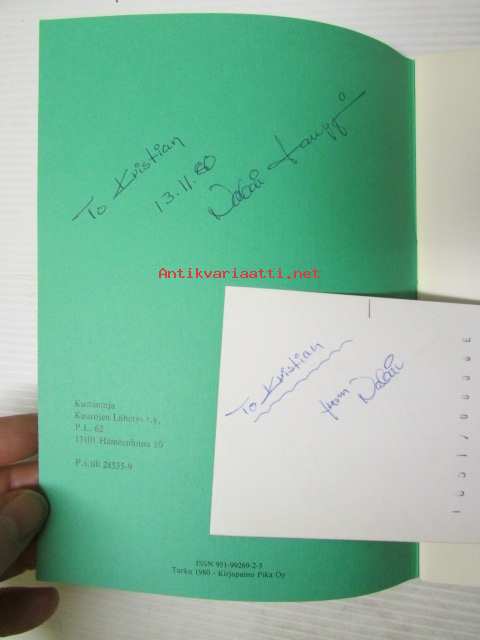 To Kristian
13.11.80
Antikvariaatti.net
To Kristian
from
Kustantaja
Kuurojen Lähetys r.y.
P.L. 62
13101 Hämeenlinna 10
P.s.tili 28535-9
ISSN 951-99269-2-5
Turku 1980 - Kirjapaino Pika Oy